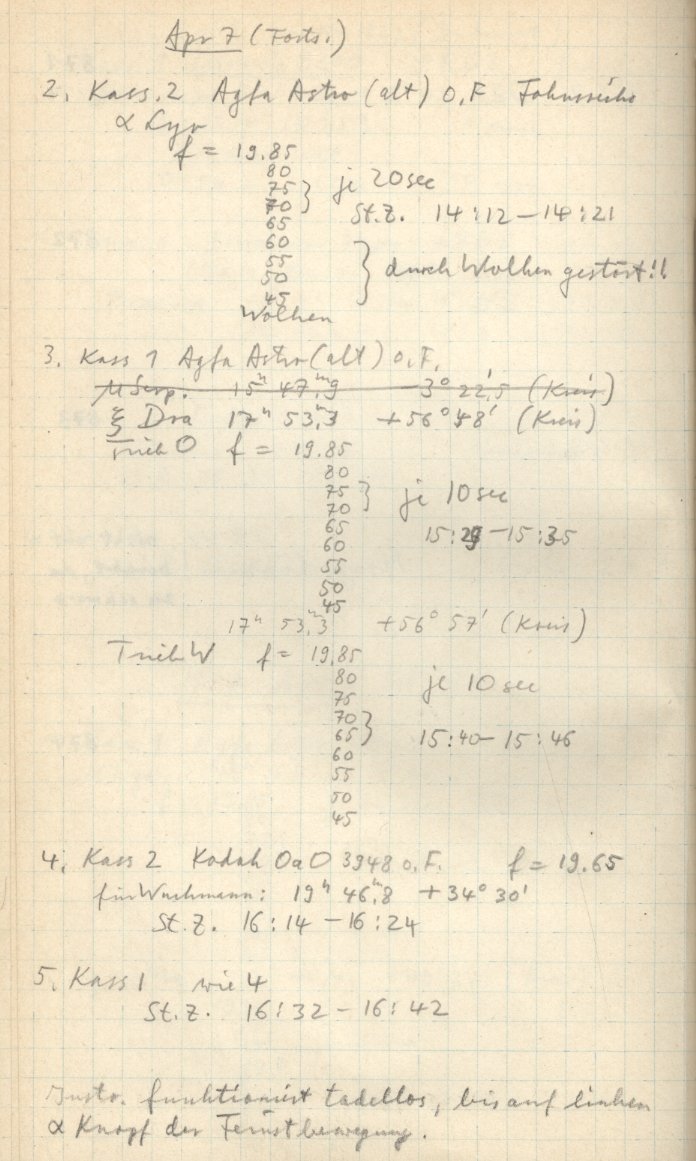 Apr 7 (Forts.)
2. Kass. 2 Agfa Astro (alt) o.F
α Lyr
f = 19.85
80
75 } je 20 sec
70
65 St.Z. 14:12–14:21
60
55 } durch Wolken gestört!!
50
45
Wolken
3. Kass 1 Agfa Astro (alt) o.F.
μ Serp. 15h 47m,9 –3° 22',5 (Kreis)
ξ Dra 17h 53m,3 +56° 48' (Kreis)
Trieb O f = 19.85
80
75 } je 10 sec
70
65 15:29–15:35
60
55
50
45
17h 53m,3 +56° 57' (Kreis)
Trieb W f = 19.85
80 je 10 sec
75
70 }
65 15:40–15:46
60
55
50
45
4. Kass 2 Kodak OaO 3948 o.F. f = 19.65
für Wachmann: 19h 46m,8 +34° 30'
St.Z. 16:14–16:24
5. Kass 1 wie 4
St.Z. 16:32–16:42
Instr. funktioniert tadellos, bis auf linken
α Knopf der Feinstbewegung.